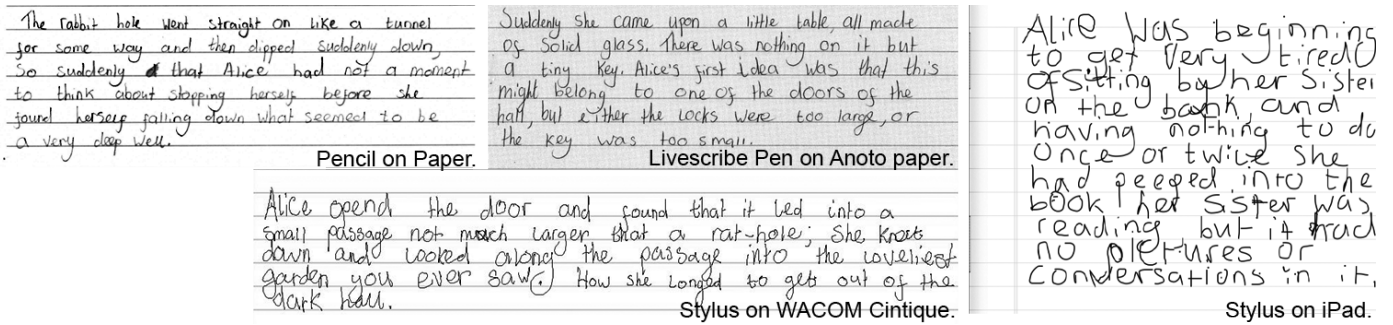 The rabbit hole went straight on like a tunnel
for some way and then dipped suddenly down,
So suddenly that Alice had not a moment
to think about stopping herself before she
found herself falling down what seemed to be
a very deep well.
Pencil on Paper.
Suddenly she came upon a little table, all made
of Solid glass. There was nothing on it but
a tiny key. Alice's first idea was that this
might belong to one of the doors of the
hall, but either the locks were too large, or
the key was too small.
Livescribe Pen on Anoto paper.
Alice opend the door and found that it led into a
small passage not much larger that a rat-hole; She knelt
down and looked along the passage into the loveliest
garden you ever saw. How she longed to get out of the
dark hall.
Stylus on WACOM Cintique.
Alice was beginning
to get very tired
of sitting by her Sister
on the bank, and
having nothing to do
Once or twice She
had peeped into the
book her Sister was
reading but it had
no pictures or
conversations in it.
Stylus on iPad.